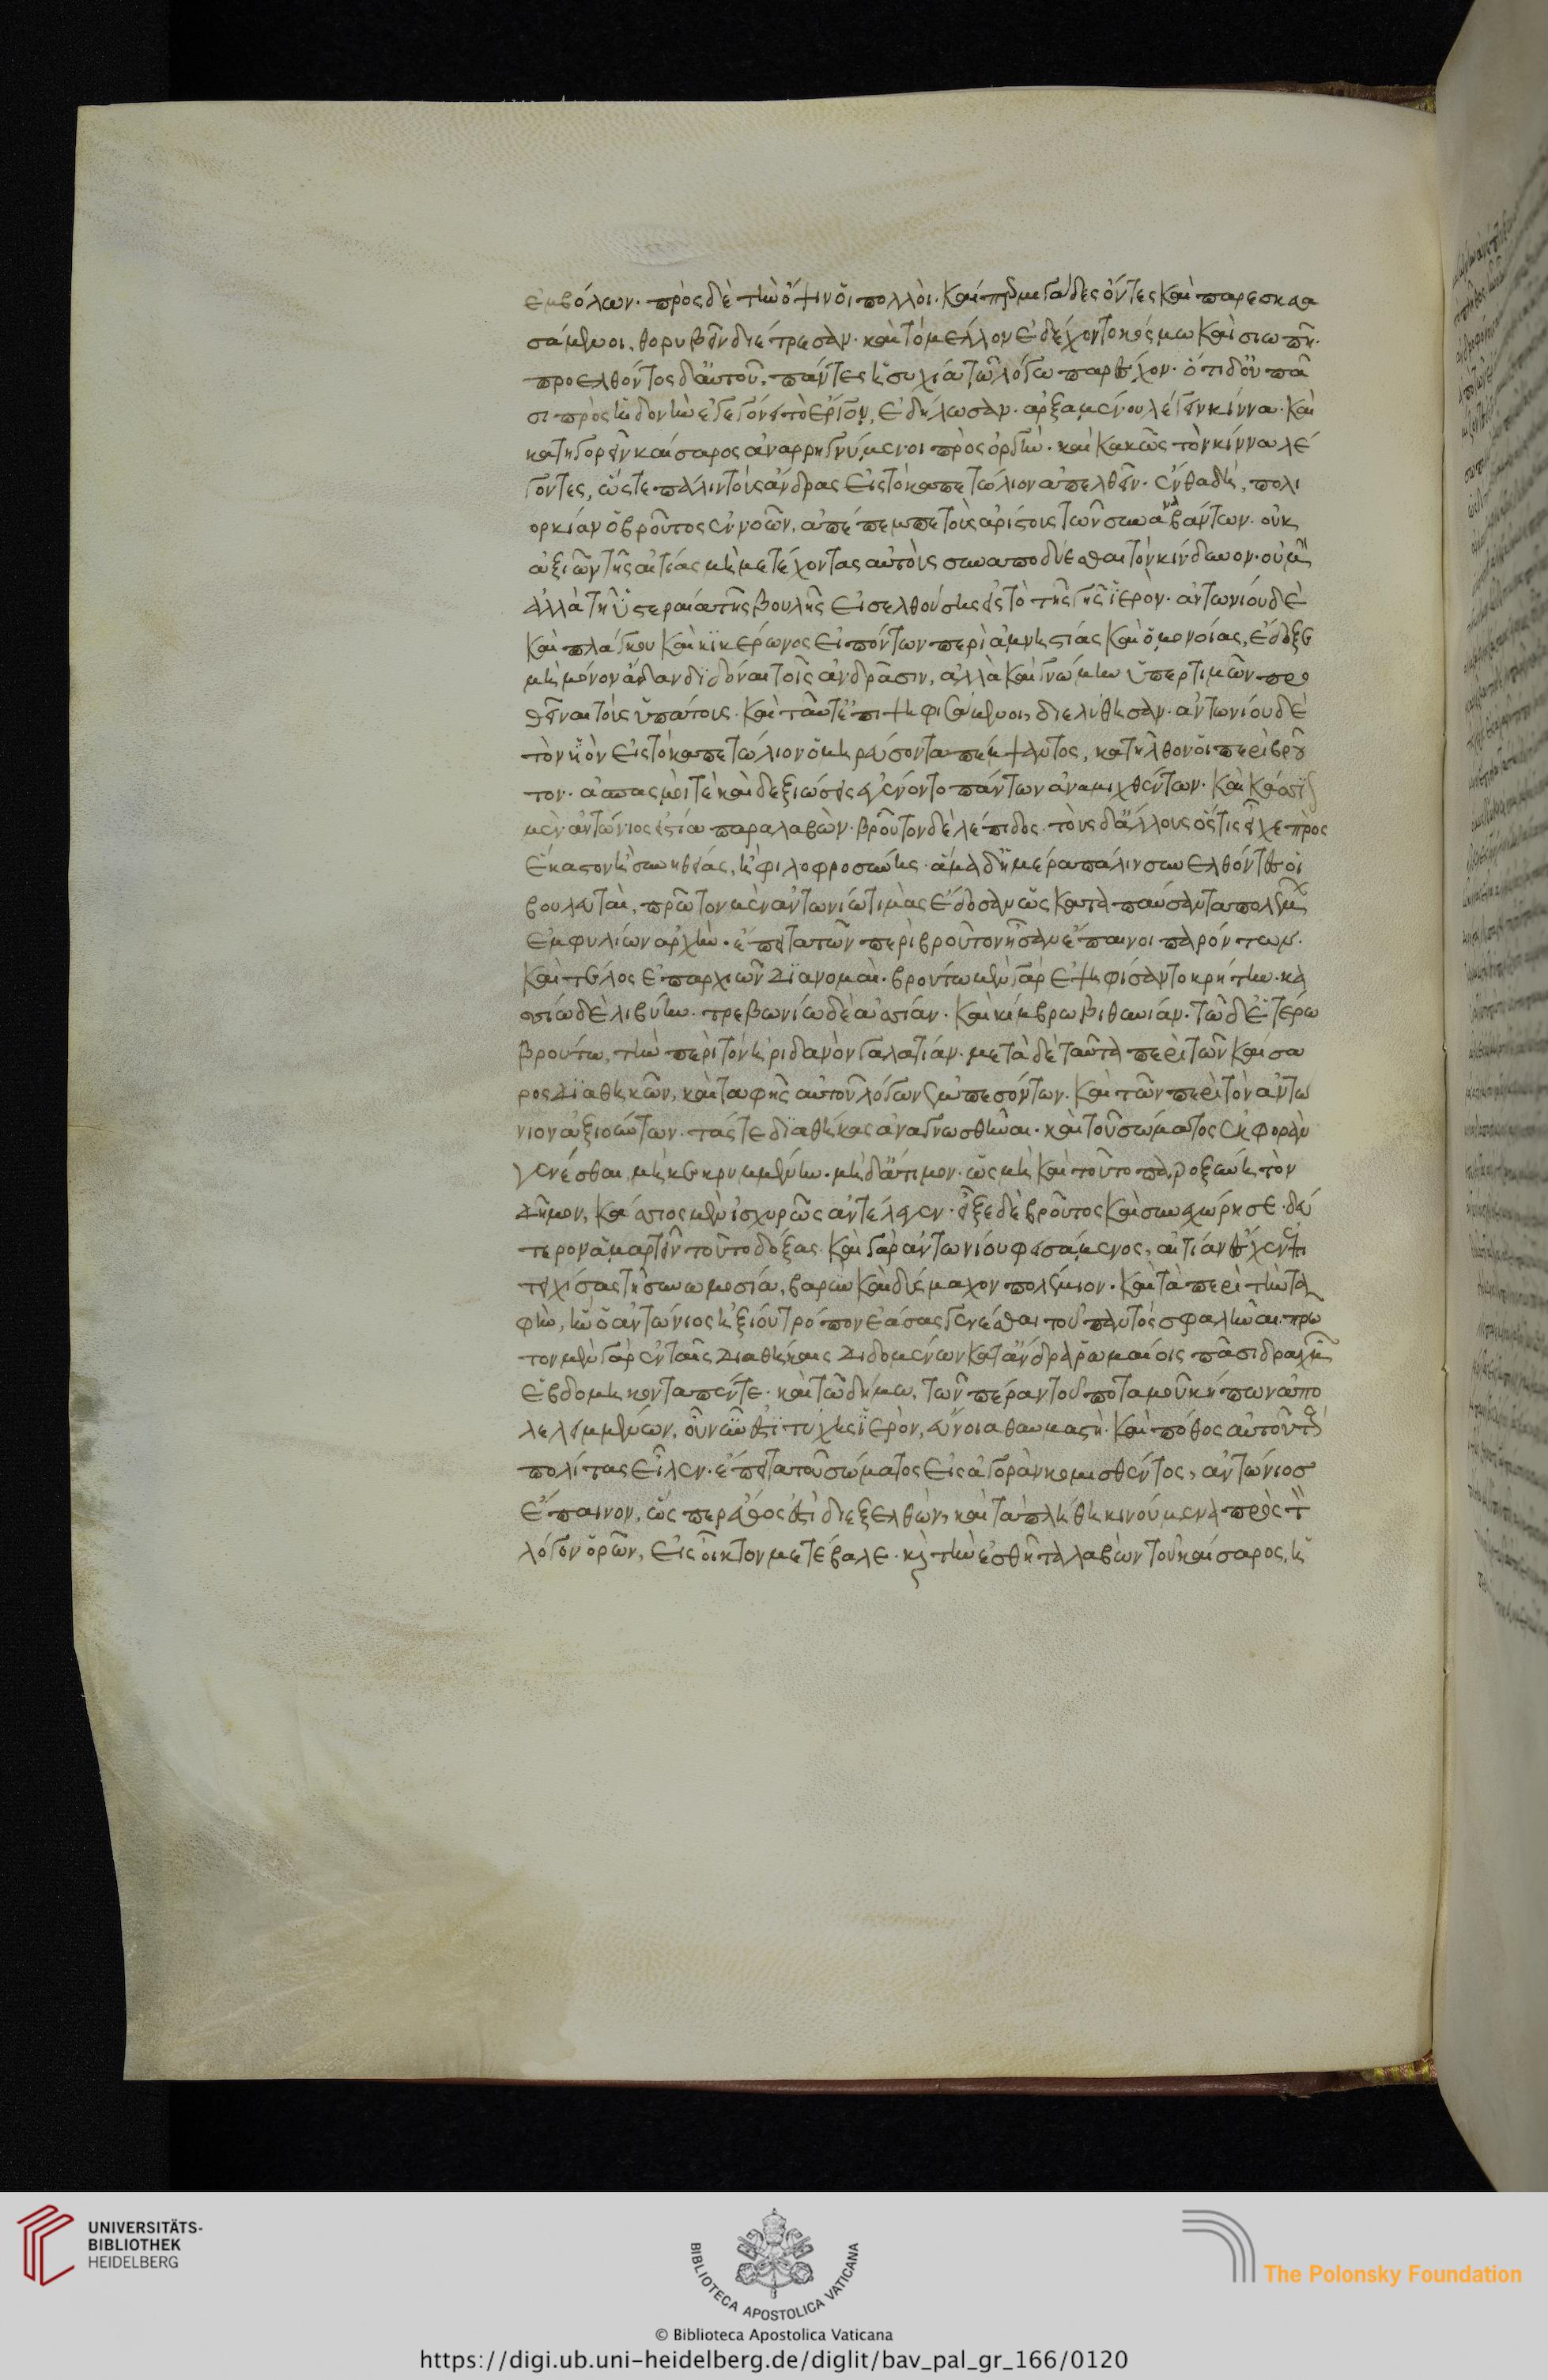 ἐμβόλων. πρὸς δὲ τὴν ὄψιν οἱ πολλοὶ. καίπερ μιγάδες ὄντες καὶ παρεσκευα
σάμενοι, θορυβεῖν διέτρεσαν. καὶ τὸ μέλλον ἐδέχοντο κόσμω καὶ σιωπῆ.
προελθόντος δ' αὐτοῦ, πάντες ἡσυχίαν τῶ λόγω παρέσχον. ὅτι δ' οὐ πᾶ
σι πρὸς ἡδονὴν ἐγεγόνει τὸ ἔργον, ἐδήλωσαν. ἀρξαμένου λέγειν κίννα. καὶ
κατηγορεῖν καίσαρος ἀναρρηγνύμενοι πρὸς ὀργὴν. καὶ κακῶς τὸν κίνναν λέ
γοντες, ὥστε πάλιν τοὺς ἄνδρας εἰς τὸ καπετώλιον ἀπελθεῖν. ἔνθα δὴ, πολι
ορκίαν ὁ βροῦτος ἐννοῶν, ἀπέπεμπε τοὺς ἀρίστους τῶν συναναβάντων. οὐκ
ἀξιῶν τῆς αἰτίας μὴ μετέχοντας αὐτοὺς συναποδύεσθαι τὸν κίνδυνον. οὐ μὴν
ἀλλὰ τῆ ὑστεραία τῆς βουλῆς εἰσελθούσης εἰς τὸ τῆς γῆς ἱερὸν. ἀντωνίου δὲ
καὶ πλάγκου καὶ κικέρωνος εἰπόντων περὶ ἀμνηστίας καὶ ὁμονοίας, ἔδοξε
μὴ μόνον ἄδειαν διδόναι τοῖς ἀνδράσιν, ἀλλὰ καὶ γνώμην ὑπὲρ τιμῶν προ
θεῖναι τοὺς ὑπάτους. καὶ ταῦτ' ἐπιψηφισάμενοι, διελύθησαν. ἀντωνίου δὲ
τὸν υἱὸν εἰς τὸ καπετώλιον ὁμηρεύσοντα πέμψαντος, κατῆλθον οἱ περὶ βροῦ
τον. ἀσπασμοὶ τὲ καὶ δεξιώσεις ἐγένοντο πάντων ἀναμιχθέντων. καὶ κάσσιον
μὲν ἀντώνιος εἱστία παραλαβὼν. βροῦτον δὲ λέπιδος. τοὺς δ' ἄλλους ὥς τις εἶχε πρὸς
ἕκαστον ἢ συνηθείας, ἢ φιλοφροσύνης. ἅμα δ' ἡμέρα πάλιν συνελθόντες οἱ
βουλευταὶ, πρῶτον μὲν ἀντωνίω τιμὰς ἔδοσαν ὡς καταπαύσαντα πολέμων
ἐμφυλίων ἀρχὴν. ἔπειτα τῶν περὶ βροῦτον ἦσαν ἔπαινοι παρόντων.
καὶ τέλος ἐπαρχιῶν διανομαὶ. βρούτω μὲν γὰρ ἐψηφίσαντο κρήτην. κα
σσίω δὲ λιβύην. τρεβωνίω δὲ ἀσίαν. καὶ κίμβρω βιθυνίαν. τῶ δ' ἑτέρω
βρούτω, τὴν περὶ τὸν ἠριδανὸν γαλατίαν. μετὰ δὲ ταῦτα περὶ τῶν καίσα
ρος διαθηκῶν, καὶ ταφῆς αὐτοῦ λόγων ἐμπεσόντων. καὶ τῶν περὶ τὸν ἀντώ
νιον ἀξιούντων. τάς τε διαθήκας ἀναγνωσθῆναι. καὶ τοῦ σώματος ἐκφορὰν
γενέσθαι μὴ κεκρυμμένην. μηδ' ἄτιμον. ὡς μὴ καὶ τοῦτο παροξύνη τὸν
δῆμον, κάσσιος μὲν ἰσχυρῶς ἀντέλεγεν. εἶξε δὲ βροῦτος καὶ συνεχώρησε. δεύ
τερον ἁμαρτεῖν τοῦτο δόξας. καὶ γὰρ ἀντωνίου φεισάμενος, αἰτίαν ἔσχεν ἐπι
τειχίσας τῆ συνωμοσία, βαρὺν καὶ δύσμαχον πολέμιον. καὶ τὰ περὶ τὴν τα
φὴν, ἣν ὁ ἀντώνιος ἠξίου τρόπον ἐάσας γενέσθαι τοῦ παντὸς σφαλῆναι. πρῶ
τον μὲν γὰρ ἐν ταῖς διαθήκαις διδομένων κατ' ἄνδρα ῥωμαίοις πᾶσι δραχμῶν
ἑβδομήκοντα πέντε. καὶ τῶ δήμω, τῶν πέραν τοῦ ποταμοῦ κήπων ἀπο
λελειμμένων, οὗ νῦν ἐστὶ τύχης ἱερὸν, εὔνοια θαυμαστὴ. καὶ πόθος αὐτοῦ τοὺς
πολίτας εἷλεν. ἔπειτα τοῦ σώματος εἰς ἀγορὰν κομισθέντος, ἀντώνιος
ἔπαινον, ὥσπερ ἔθος ἐστὶ διεξελθὼν, καὶ τὰ πλήθη κινούμενα πρὸς τὸν
λόγον ὁρῶν, εἰς οἶκτον μετέβαλε. καὶ τὴν ἐσθῆτα λαβὼν τοῦ καίσαρος, ἡ
UNIVERSITÄTS-
BIBLIOTHEK
HEIDELBERG
BIBLIOTECA APOSTOLICA VATICANA
The Polonsky Foundation
© Biblioteca Apostolica Vaticana
https://digi.ub.uni-heidelberg.de/diglit/bav_pal_gr_166/0120